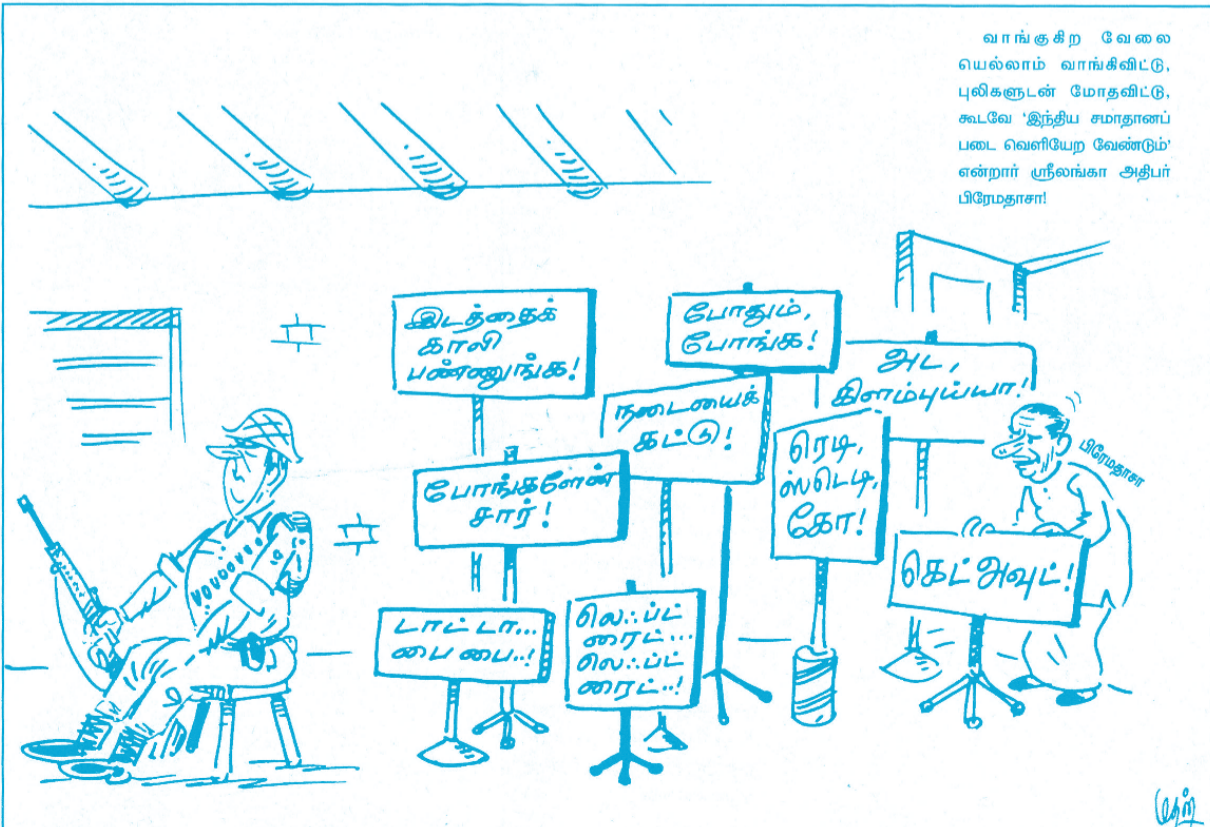 வாங்குகிற வேலை
யெல்லாம் வாங்கிவிட்டு,
புலிகளுடன் மோதவிட்டு,
கூடவே 'இந்திய சமாதானப்
படை வெளியேற வேண்டும்'
என்றார் ஸ்ரீலங்கா அதிபர்
பிரேமதாசா!
இடத்தைக்
காலி
பண்ணுங்க!
போதும்,
போங்க!
அட,
கிளம்புய்யா!
நடையைக்
கட்டு!
ரெடி,
ஸ்டெடி,
கோ!
போங்களேன்
சார்!
பிரேமதாசா
கெட் அவுட்!
டாட்டா...
பை பை..!
லெஃப்ட்
ரைட்...
லெஃப்ட்
ரைட்..!
மதன்